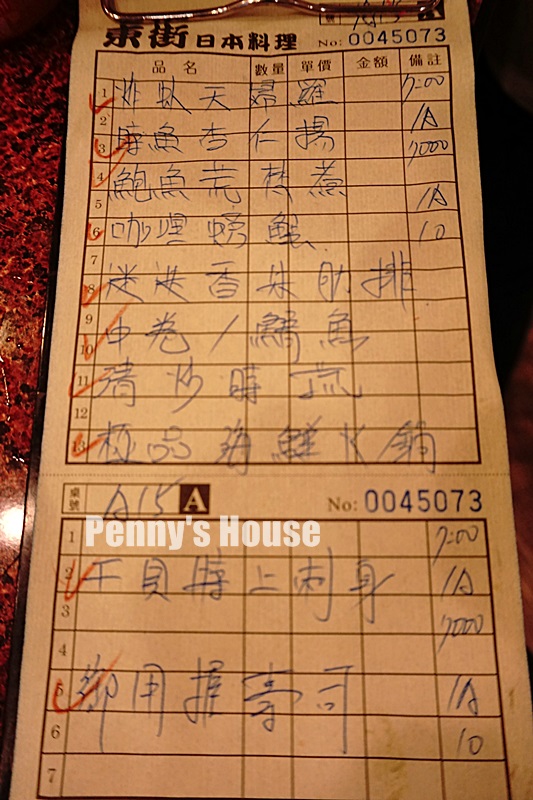 桌號 A15 A
東街日本料理 No: 0045073
品名 數量 單價 金額 備註
1 炸蚍天婦羅 7:00
2 1A
3 唐魚杏仁揚 7000
4 鮑魚荒焚煮
5 1A
6 咖哩螃蟹 10
7
8 迷迭香朱肋排
9
10 中卷/鱈魚
11 清炒時蔬
12
13 極品海鮮火鍋
桌號 A15 A No: 0045073
Penny's House
1 7:00
2 干貝特上刺身 1A
3 7000
4
5 御用握壽司 1A
6 10
7